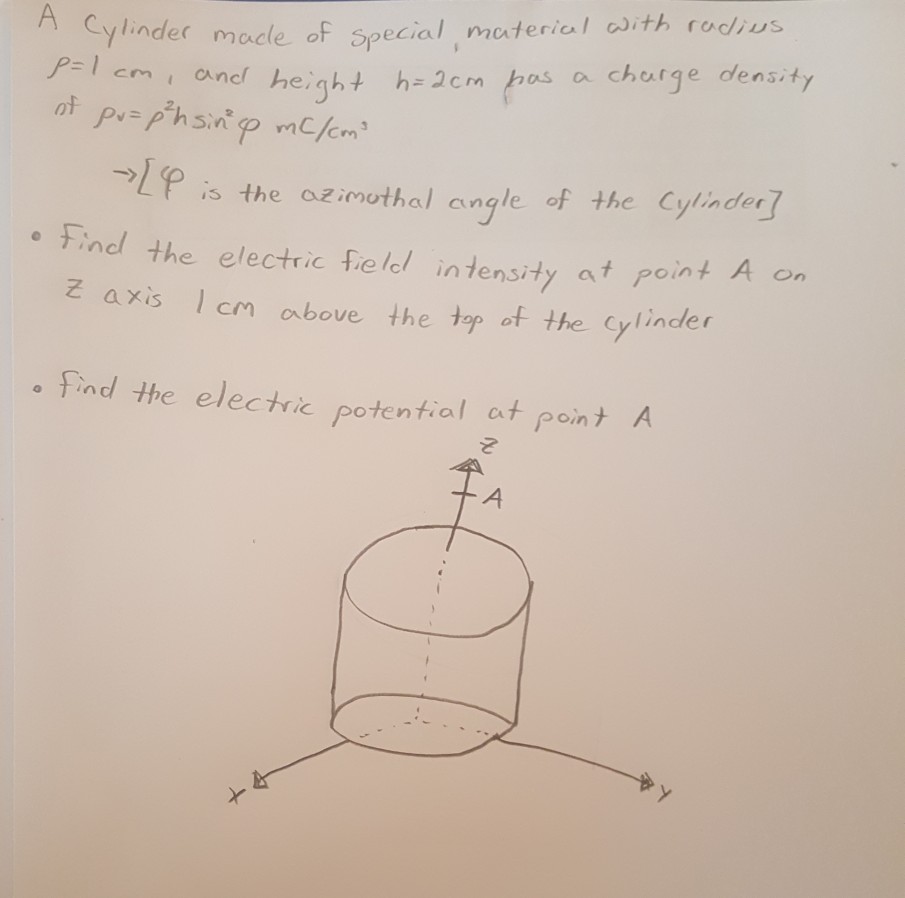 A Cylinder made of special, material with radius
ρ=1 cm, and height h=2cm has a charge density
of ρv=ρ²h sin²φ mC/cm³
→[φ is the azimuthal angle of the Cylinder]
• Find the electric field intensity at point A on
Z axis 1 cm above the top of the cylinder
• find the electric potential at point A
Z
A
X
Y